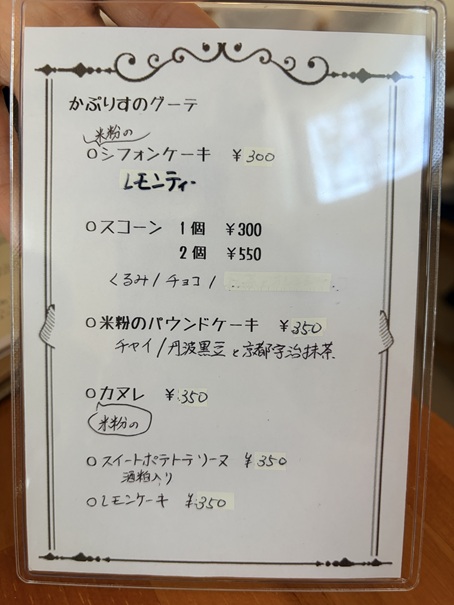 かぷりすのグーテ
米粉の
○シフォンケーキ ¥300
レモンティー
○スコーン 1個 ¥300
2個 ¥550
くるみ/チョコ/
○米粉のパウンドケーキ ¥350
チャイ/丹波黒豆と京都宇治抹茶
○カヌレ ¥350
米粉の
○スイートポテトテリーヌ ¥350
酒粕入り
○レモンケーキ ¥350